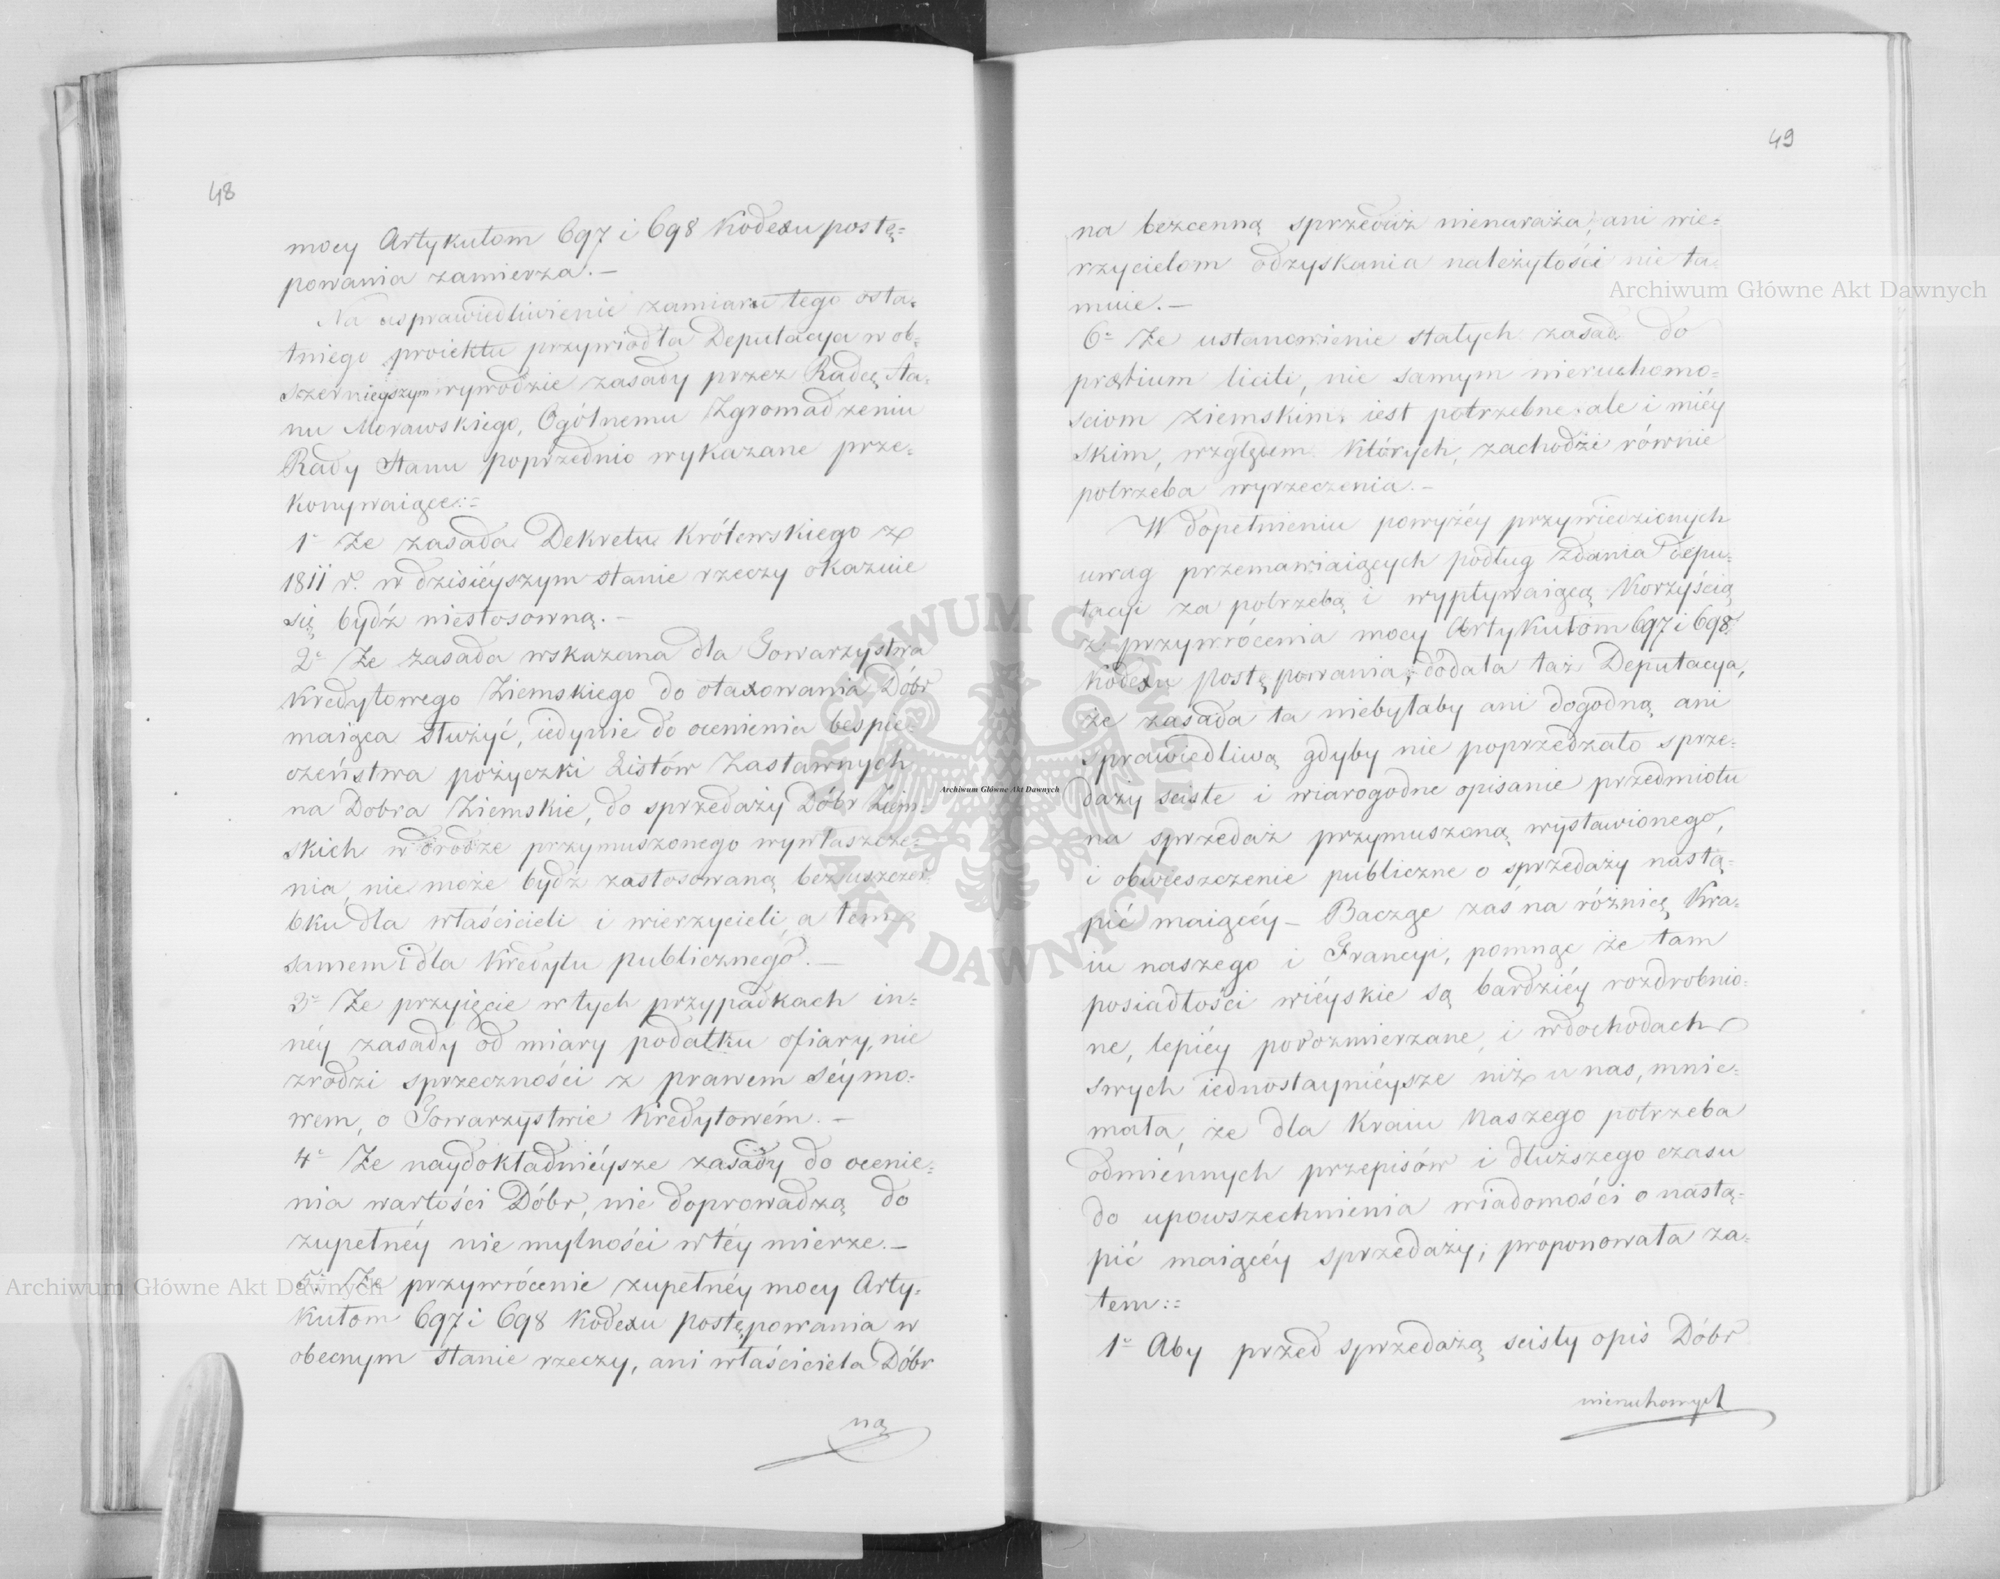 48
mocy Artykułom 697 i 698 Kodexu postę=
powania zamierza. —
Na usprawiedliwienie zamiaru tego osta=
tniego proiektu przywiodła Deputacya w ob=
szernieyszym wywodzie zasady przez Radcę Sta=
nu Morawskiego, Ogólnemu Zgromadzeniu
Rady Stanu poprzednio wykazane prze=
konywaiące:=
1= Że zasada Dekretu Królewskiego z
1811 r. w dzisiéyszym stanie rzeczy okazuie
się bydź niestosowną. —
2= Że zasada wskazana dla Towarzystwa
Kredytowego Ziemskiego do otaxowania Dóbr
maiąca służyć, iedynie do ocenienia bespie=
czeństwa pożyczki Listów Zastawnych
na Dobra Ziemskie, do sprzedaży Dóbr Ziem=
skich w drodze przymuszonego wywłaszcze=
nia, nie może bydź zastosowaną bez uszczer=
bku dla właścicieli i wierzycieli, a tem
samem i dla Kredytu publicznego. —
3= Że przyięcie w tych przypadkach in=
néy zasady od miary podatku ofiary, nie
zrodzi sprzeczności z prawem Séymo=
wem, o Towarzystwie Kredytowém. —
4= Że naydokładniéysze zasady do ocenie=
nia wartości Dóbr, nie doprowadzą do
zupełnéy nie mylności w téy mierze. —
5= Że przywrócenie zupełnéy mocy Arty=
kułom 697 i 698 Kodexu postępowania w
obecnym stanie rzeczy, ani właściciela Dóbr
na
49
na bezcenną sprzedaż nienaraża, ani wie=
rzycielom odzyskania należytości nie ta=
muie. —
6= Że ustanowienie stałych zasad do
praetium liciti, nie samym nieruchomo=
sciom ziemskim, iest potrzebne, ale i miéy
skim, względem których, zachodzi równie
potrzeba wyrzeczenia. —
W dopełnieniu powyżéy przywiedzionych
uwag przemawiaiących podług zdania Depu=
tacyi za potrzebą i wypływaiącą korzyścią
z przywrócenia mocy Artykułom 697 i 698
Kodexu postępowania, dodała taż Deputacya,
że zasada ta niebyłaby ani dogodną ani
sprawiedliwą gdyby nie poprzedzało sprze=
daży scisłe i wiarogodne opisanie przedmiotu
na sprzedaż przymuszoną wystawionego,
i obwieszczenie publiczne o sprzedaży nastą=
pić maiącéy — Bacząc zaś na różnicę Kra=
iu naszego i Francyi, pomnąc że tam
posiadłości wiéyskie są bardziéy rozdrobnio=
ne, lepiéy porozmierzane, i w dochodach
swych iednostayniéysze niż u nas, mnie=
mała, że dla Kraiu Naszego potrzeba
odmiénnych przepisów i dłuższego czasu
do upowszechnienia wiadomości o nastą=
pić maiącéy sprzedaży; proponowała za=
tem:=
1= Aby przed sprzedażą scisły opis Dóbr
nieruchomych
Archiwum Główne Akt Dawnych
Archiwum Główne Akt Dawnych
Archiwum Główne Akt Dawnych
ARCHIWUM GŁÓWNE AKT DAWNYCH